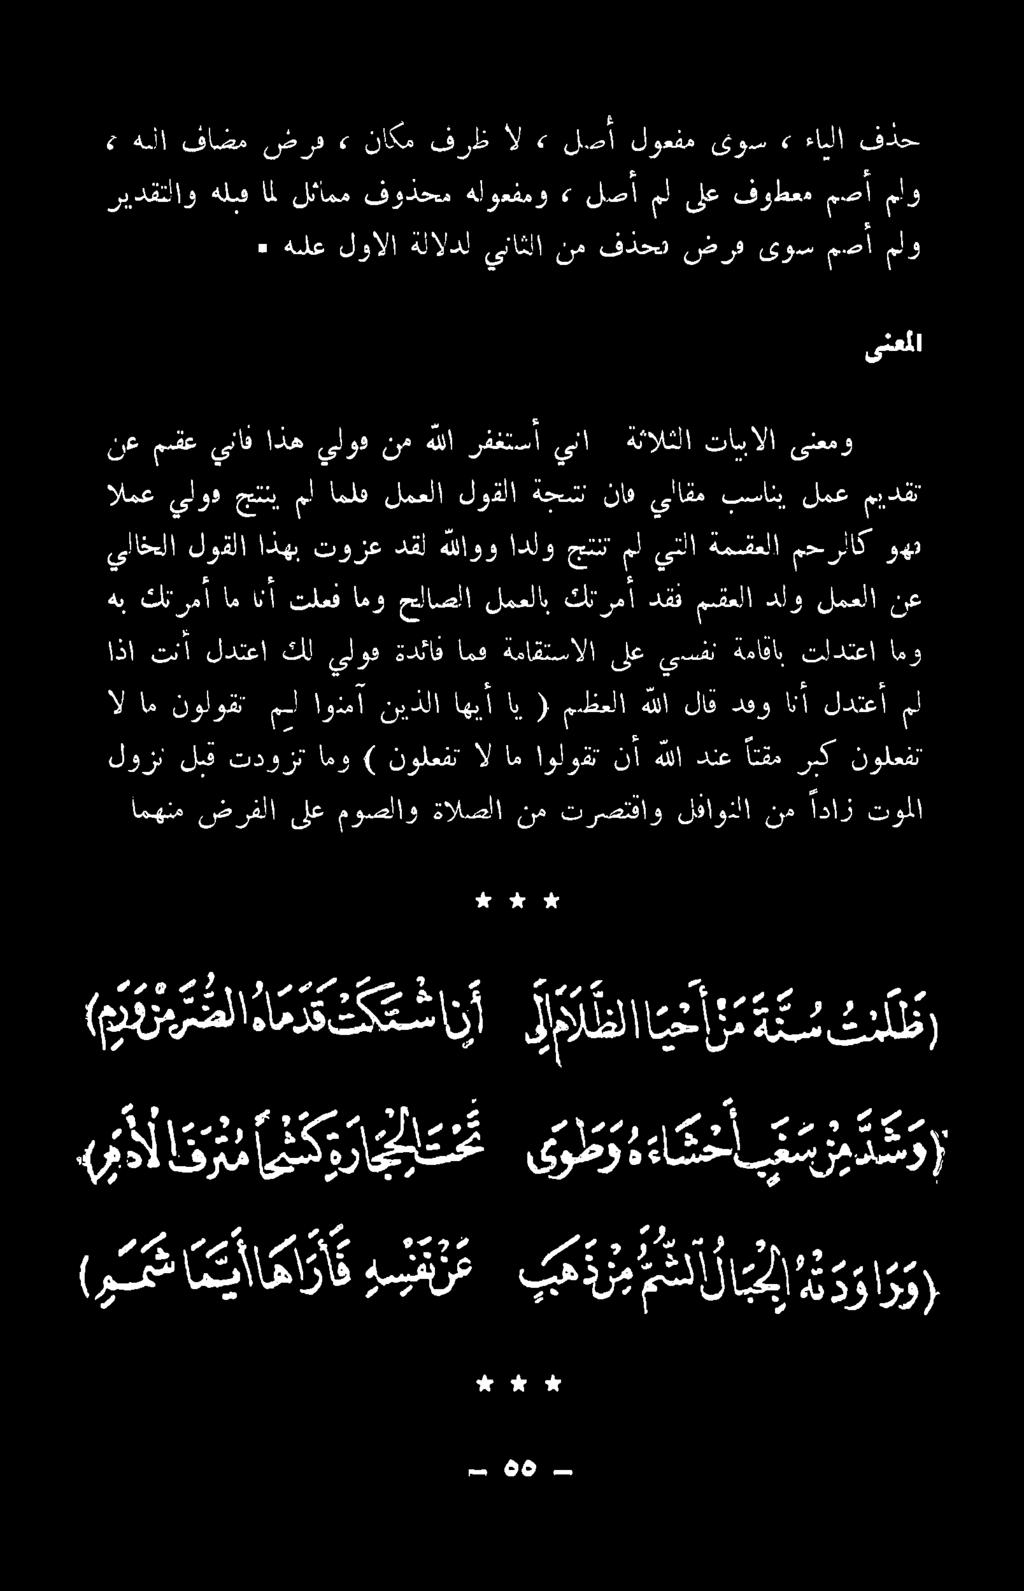 حذف الياء ، سوى مفعول أصل ، لا ظرف مكان ، فرض مضاف اليه ،
ولم أصم معطوف على لم أصل ، ومفعوله محذوف مماثل لما قبله والتقدير
ولم أصم سوى فرض فحذف من الثاني لدلالة الاول عليه .
المعنى
ومعنى الابيات الثلاثة اني أستغفر الله من قولي هذا فاني عقيم عن
تقديم عمل يناسب مقالي فان نتيجة القول العمل فلما لم ينتج قولي عملا
فهو كالرحم العقيمة التي لم تنتج ولدا ووالله لقد عزوت بهذا القول الخالي
عن العمل ولد العقيم فقد أمرتك بالعمل الصالح وما فعلت أنا ما أمرتك به
وما اعتدلت باقامة نفسي على الاستقامة فما فائدة قولي لك اعتدل أنت اذا
لم أعتدل أنا وقد قال الله العظيم ( يا أيها الذين آمنوا لم تقولون ما لا
تفعلون كبر مقتاً عند الله أن تقولوا ما لا تفعلون ) وما تزودت قبل نزول
الموت زاداً من النوافل واقتصرت من الصلاة والصوم على الفرض منهما
★ ★ ★
(ظَلَمْتُ سُنَّةَ مَنْ أَحْيَا الظَّلَامَ إِلَى أَنِ اشْتَكَتْ قَدَمَاهُ الضُّرَّ مِنْ وَرَمِ)
(وَشَدَّ مِنْ سَغَبٍ أَحْشَاءَهُ وَطَوَى تَحْتَ الْحِجَارَةِ كَشْحاً مُتْرَفَ الْأَدَمِ)
(وَرَاوَدَتْهُ الْجِبَالُ الشُّمُّ مِنْ ذَهَبٍ عَنْ نَفْسِهِ فَأَرَاهَا أَيَّمَا شَمَمِ)
★ ★ ★
– ٥٥ –